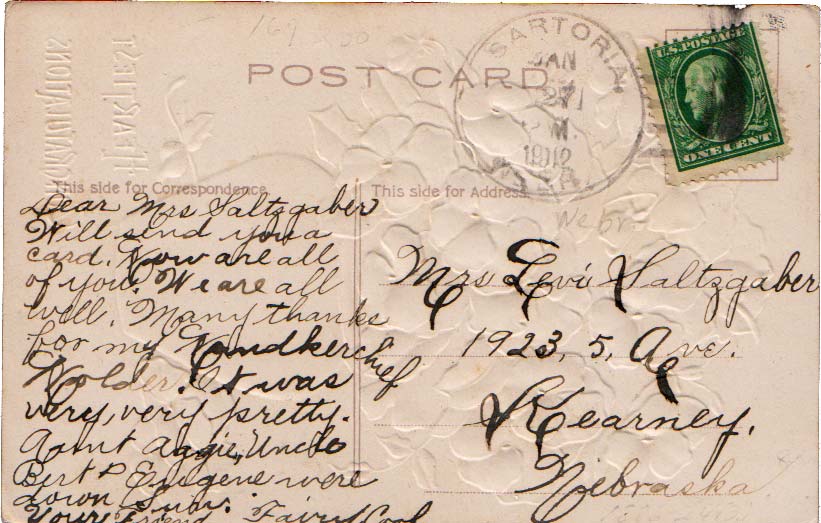 169
SARTORIA
JAN
1912
NEBR.
U.S. POSTAGE
ONE CENT
POST CARD
HEARTIEST
This side for Correspondence
This side for Address
Nebr.
Dear Mrs Saltzgaber
Will send you a
card. How are all
of you. We are all
well. Many thanks
for my Handkerchief
Holder. It was
very, very pretty.
Aunt Aggie, Uncle
Bert & Eugene were
down Sun.
Your Friend Fairy
Mrs Levi Saltzgaber
1923, 5, Ave.
Kearney,
Nebraska